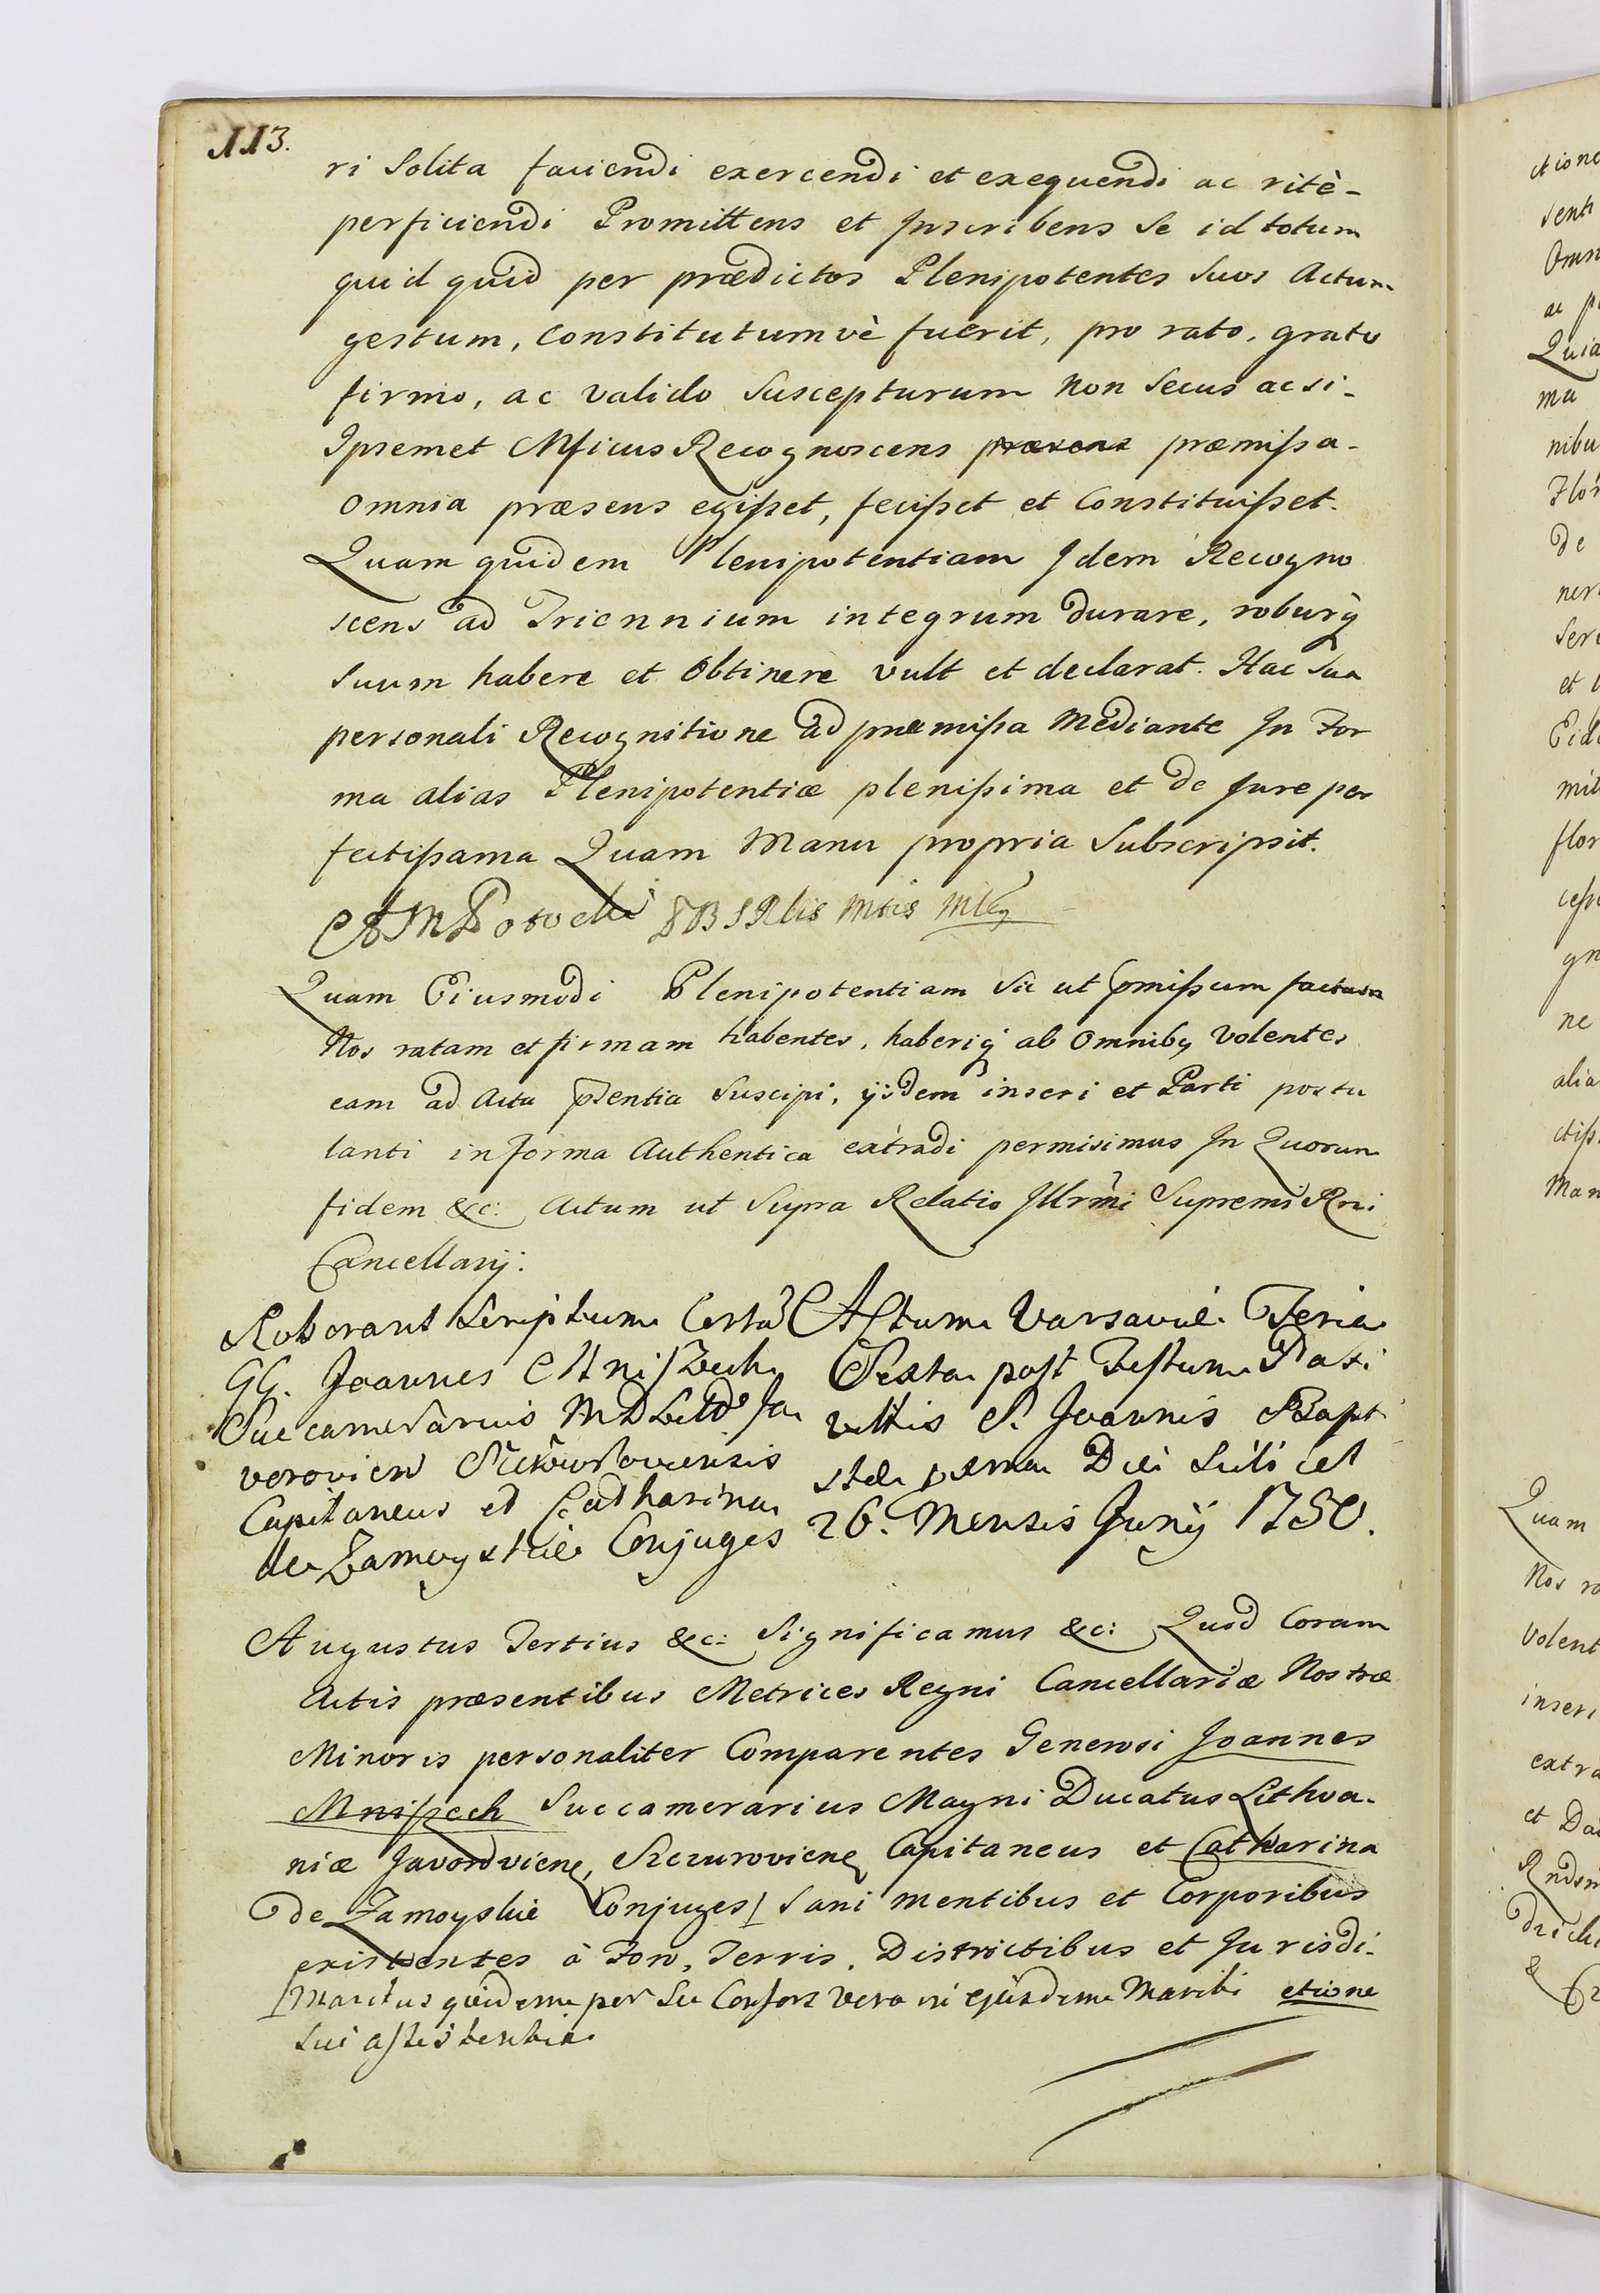 113.
ri Solita faciendi exercendi et exequendi ac ritè-
perficiendi Promittens et Inscribens Se id totum
quid quid per prædictos Plenipotentes Suos Actum
gestum, Constitutumvè fuerit, pro rato, grato
firmo, ac valido Suscepturum non Secus ac si-
Ipsemet Mficus Recognoscens præmissa-
omnia præsens egisset, fecisset et Constituisset.
Quam quidem Plenipotentiam Idem Recogno
scens ad Triennium integrum durare, roburq
Suum habere et Obtinere vult et declarat. Hac Sua
personali Recognitione ad præmissa mediante In For
ma alias Plenipotentiæ plenissima et de Jure per
fectissama Quam Manu propria Subscripsit.
Quam Eiusmodi Plenipotentiam Sic ut pmissum factam
Nos ratam et firmam habentes, haberiq ab Omnibq volentes
eam ad Acta pntia Suscipi, ijsdem inseri et Parti postu
lanti in forma Authentica extradi permisimus In Quorum
fidem &c: Actum ut Supra Relatio Illrmi Supremi Rni
Cancellarij:
Roborant Scriptum Certũ
GG. Joannes Mniszech
Succamerarius M D Litt Ja
vorovien
Capitaneus et Catharina
de Zamoyskie Conjuges
Actum Varsaviæ Feria
Sexta post Festum Nati
vittis S. Joannis Bapt
stæ Die Scilicet
26. Mensis Junij 1750.
Augustus Tertius &c: Significamus &c: Quod Coram
Actis præsentibus Metrices Regni Cancellariæ Nostræ
Minoris personaliter Comparentes Generosi Joannes
Mniszech Succamerarius Magni Ducatus Lithva-
niæ Javorovieñ, Szczurovieñ Capitaneus et Catharina
de Zamoyskie Conjuges Sani mentibus et Corporibus
existentes à Foro, Terris, Districtibus et Jurisdi-
Maritus quidem per Se Consors vero in ejusdem Mariti ctione
Sui assistentia